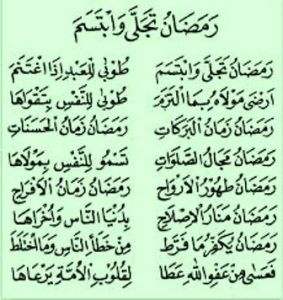 رَمَضَانُ تَجَلَّى وَابْتَسَمَ
رَمَضَانُ تَجَلَّى وَابْتَسَمَ طُوْبٰى لِلْعَبْدِ اِذَا اغْتَنَمَ
اَرْضٰى مَوْلَاهُ بِمَا الْتَزَمَ طُوْبٰى لِلنَّفْسِ بِتَقْوَاهَا
رَمَضَانُ زَمَانُ الْبَرَكَاتِ رَمَضَانُ زَمَانُ الْحَسَنَاتِ
رَمَضَانُ مَجَالُ الصَّلَوَاتِ تَسْمُو لِلنَّفْسِ بِمَوْلَاهَا
رَمَضَانُ طَهُوْرُ الْاَرْوَاحِ رَمَضَانُ زَمَانُ الْاَفْرَاحِ
رَمَضَانُ مَنَارُ الْاِصْلَاحِ بِدُنْيَا النَّاسِ وَاُخْرَاهَا
رَمَضَانُ يُكَفِّرُ مَا فَرَطَ مِنْ خَطَأِ النَّاسِ وَمَا اخْتَلَطَ
فَعَسٰى مِنْ عَفْوِ اللهِ عَطَا لِقُلُوْبِ الْاُمَّةِ يَرْعَاهَا